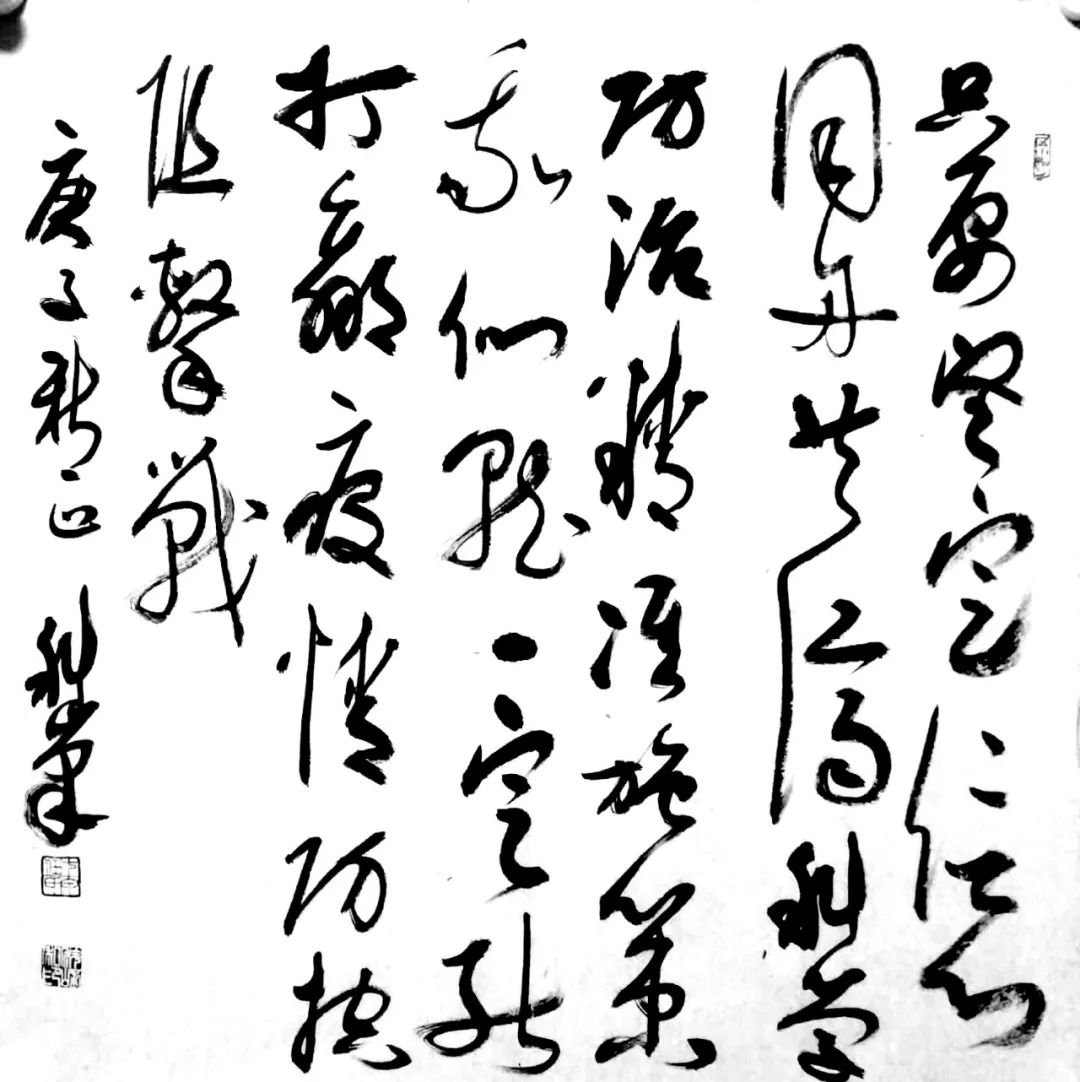 只要堅定信心
同舟共济科学
防治精准施策
我们就一定能
打赢疫情防控
阻擊戰
庚子新正